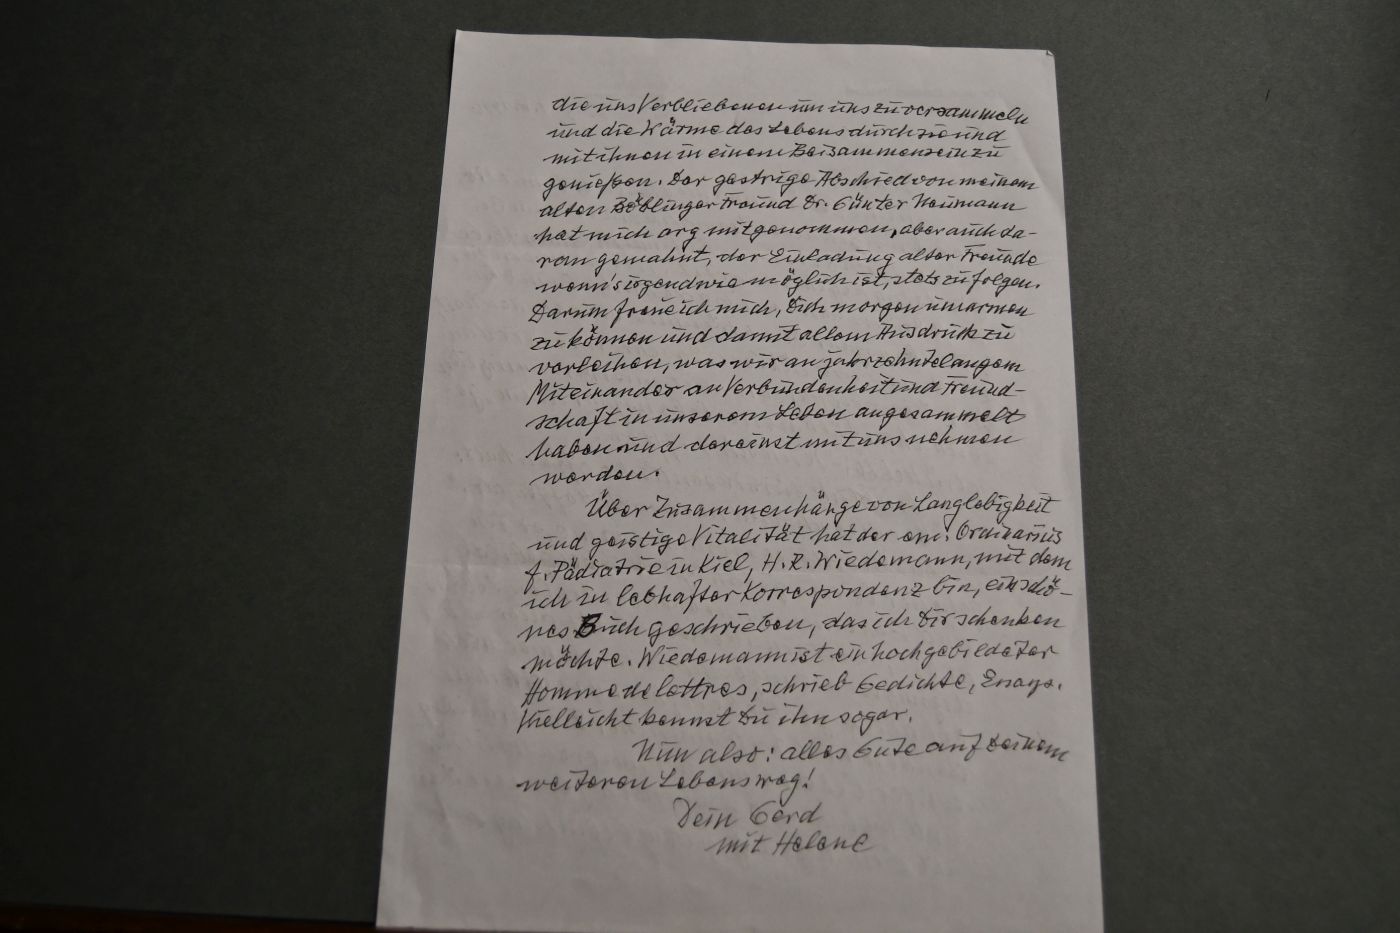 die uns Verbliebenen um uns zu versammeln
und die Wärme des Lebens durch sie und
mit ihnen in einem Beisammensein zu
genießen. Der gestrige Abschied von meinem
alten Böblinger Freund Dr. Günter Neumann
hat mich arg mitgenommen, aber auch da-
ran gemahnt, der Einladung alter Freunde
wenn's irgendwie möglich ist, stets zu folgen.
Darum freue ich mich, Dich morgen umarmen
zu können und damit allem Ausdruck zu
verleihen, was wir an jahrzehntelangem
Miteinander an Verbundenheit und Freund-
schaft in unserem Leben angesammelt
haben und dereinst mit uns nehmen
werden.
Über Zusammenhänge von Langlebigkeit
und geistige Vitalität hat der em. Ordinarius
f. Pädiatrie in Kiel, H. R. Wiedemann, mit dem
ich in lebhafter Korrespondenz bin, ein schö-
nes Buch geschrieben, das ich Dir schenken
möchte. Wiedemann ist ein hochgebildeter
Homme de lettres, schrieb Gedichte, Essays.
Vielleicht kennst Du ihn sogar.
Nun also: alles Gute auf Deinem
weiteren Lebensweg!
Dein Gerd
mit Helene